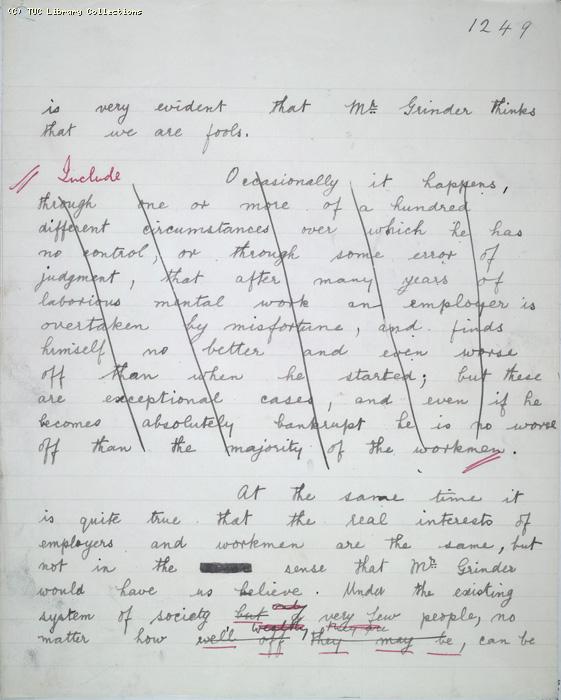 (C) TUC Library Collections
1249
is very evident that Mr. Grinder thinks
that we are fools.
// Include Occasionally it happens,
through one or more of a hundred
different circumstances over which he has
no control, or through some error of
judgment, that after many years of
laborious mental work an employer is
overtaken by misfortune, and finds
himself no better and even worse
off than when he started; but these
are exceptional cases, and even if he
becomes absolutely bankrupt he is no worse
off than the majority of the workmen.
At the same time it
is quite true that the real interests of
employers and workmen are the same, but
not in the sense that Mr. Grinder
would have us believe. Under the existing
system of society but only very few people, no
wealthy they are
matter how well off they may be, can be